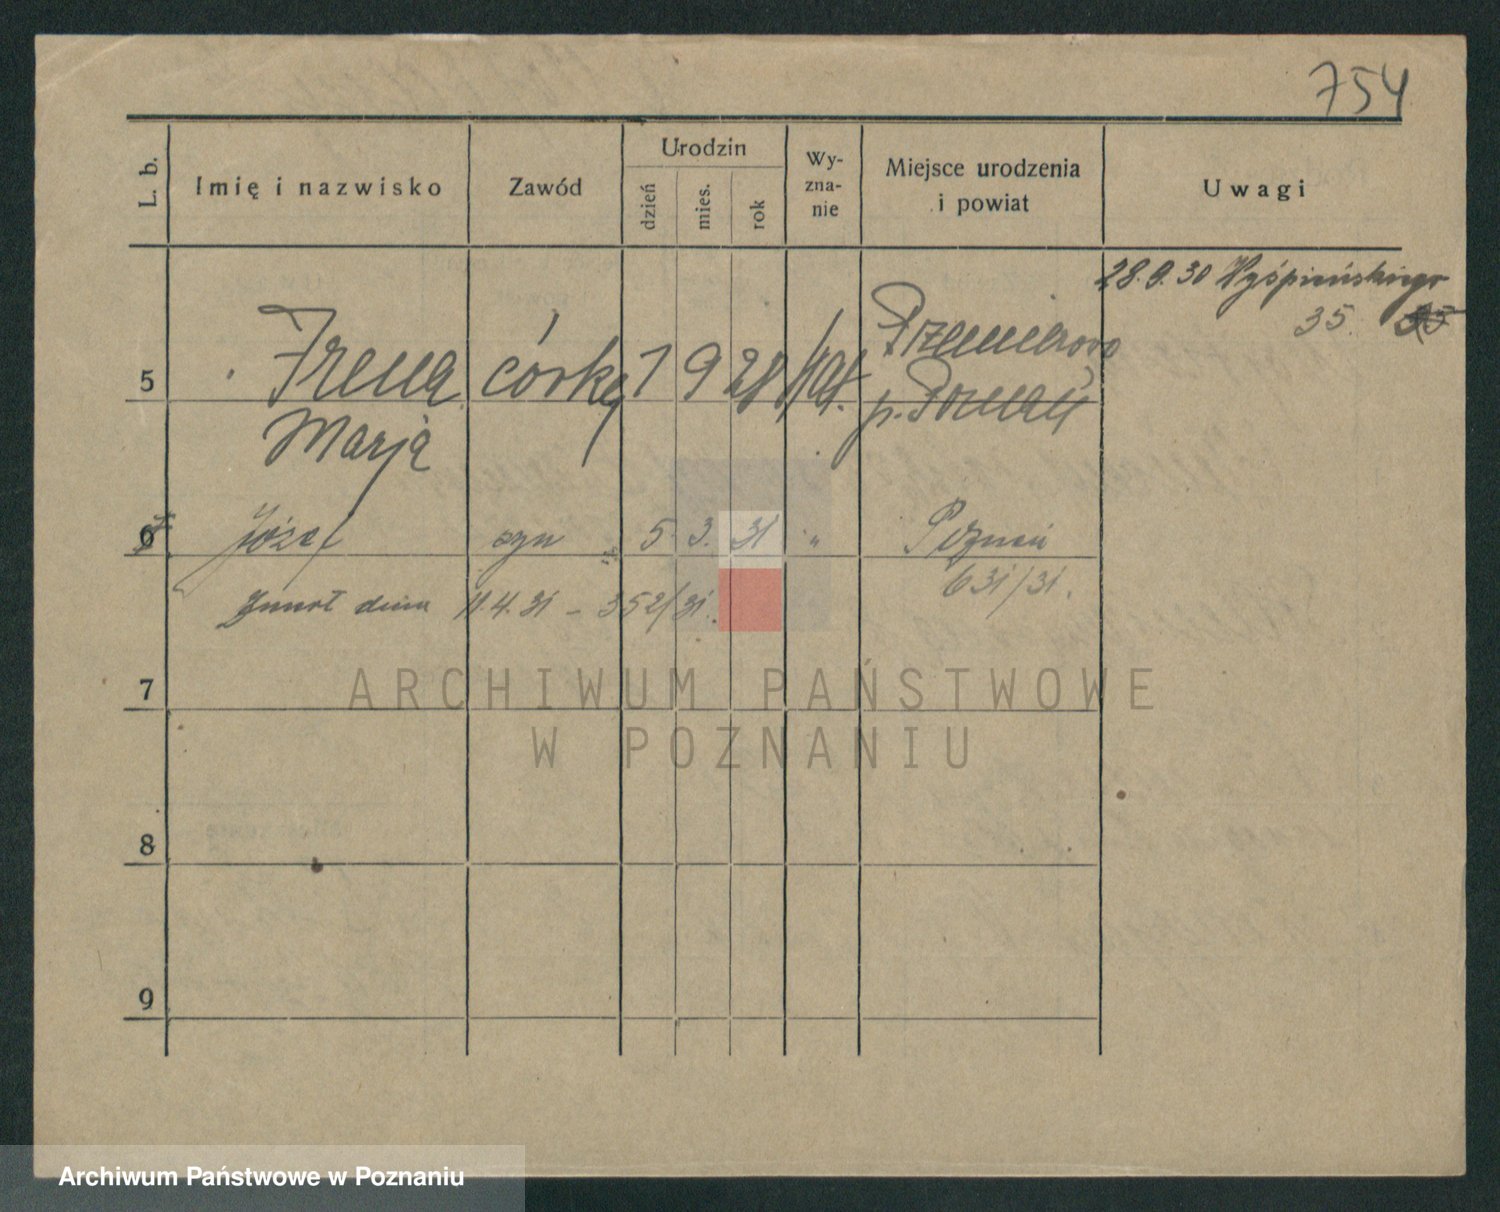 754
L. b.
Imię i nazwisko
Zawód
Urodzin
dzień
mies.
rok
Wy-
zna-
nie
Miejsce urodzenia
i powiat
Uwagi
28.9.30 Wyśpiańskiego
35.
5
Irena córka 1 9 28
Marja
p. Poznań
6 Józef syn 5. 3. 31 " Poznań
631/31.
Zmarł dnia 11.4.31 – 352/31.
7
8
9
ARCHIWUM PAŃSTWOWE
W POZNANIU
Archiwum Państwowe w Poznaniu